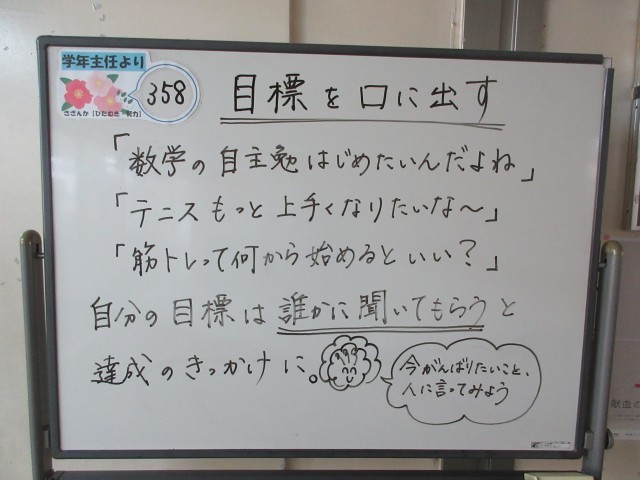 学年主任より
358
さざんか「ひたむき」「努力」
目標を口に出す
「数学の自主勉はじめたいんだよね」
「テニスもっと上手くなりたいな〜」
「筋トレって何から始めるといい？」
自分の目標は誰かに聞いてもらうと
達成のきっかけに。
今がんばりたいこと、
人に言ってみよう
献血の